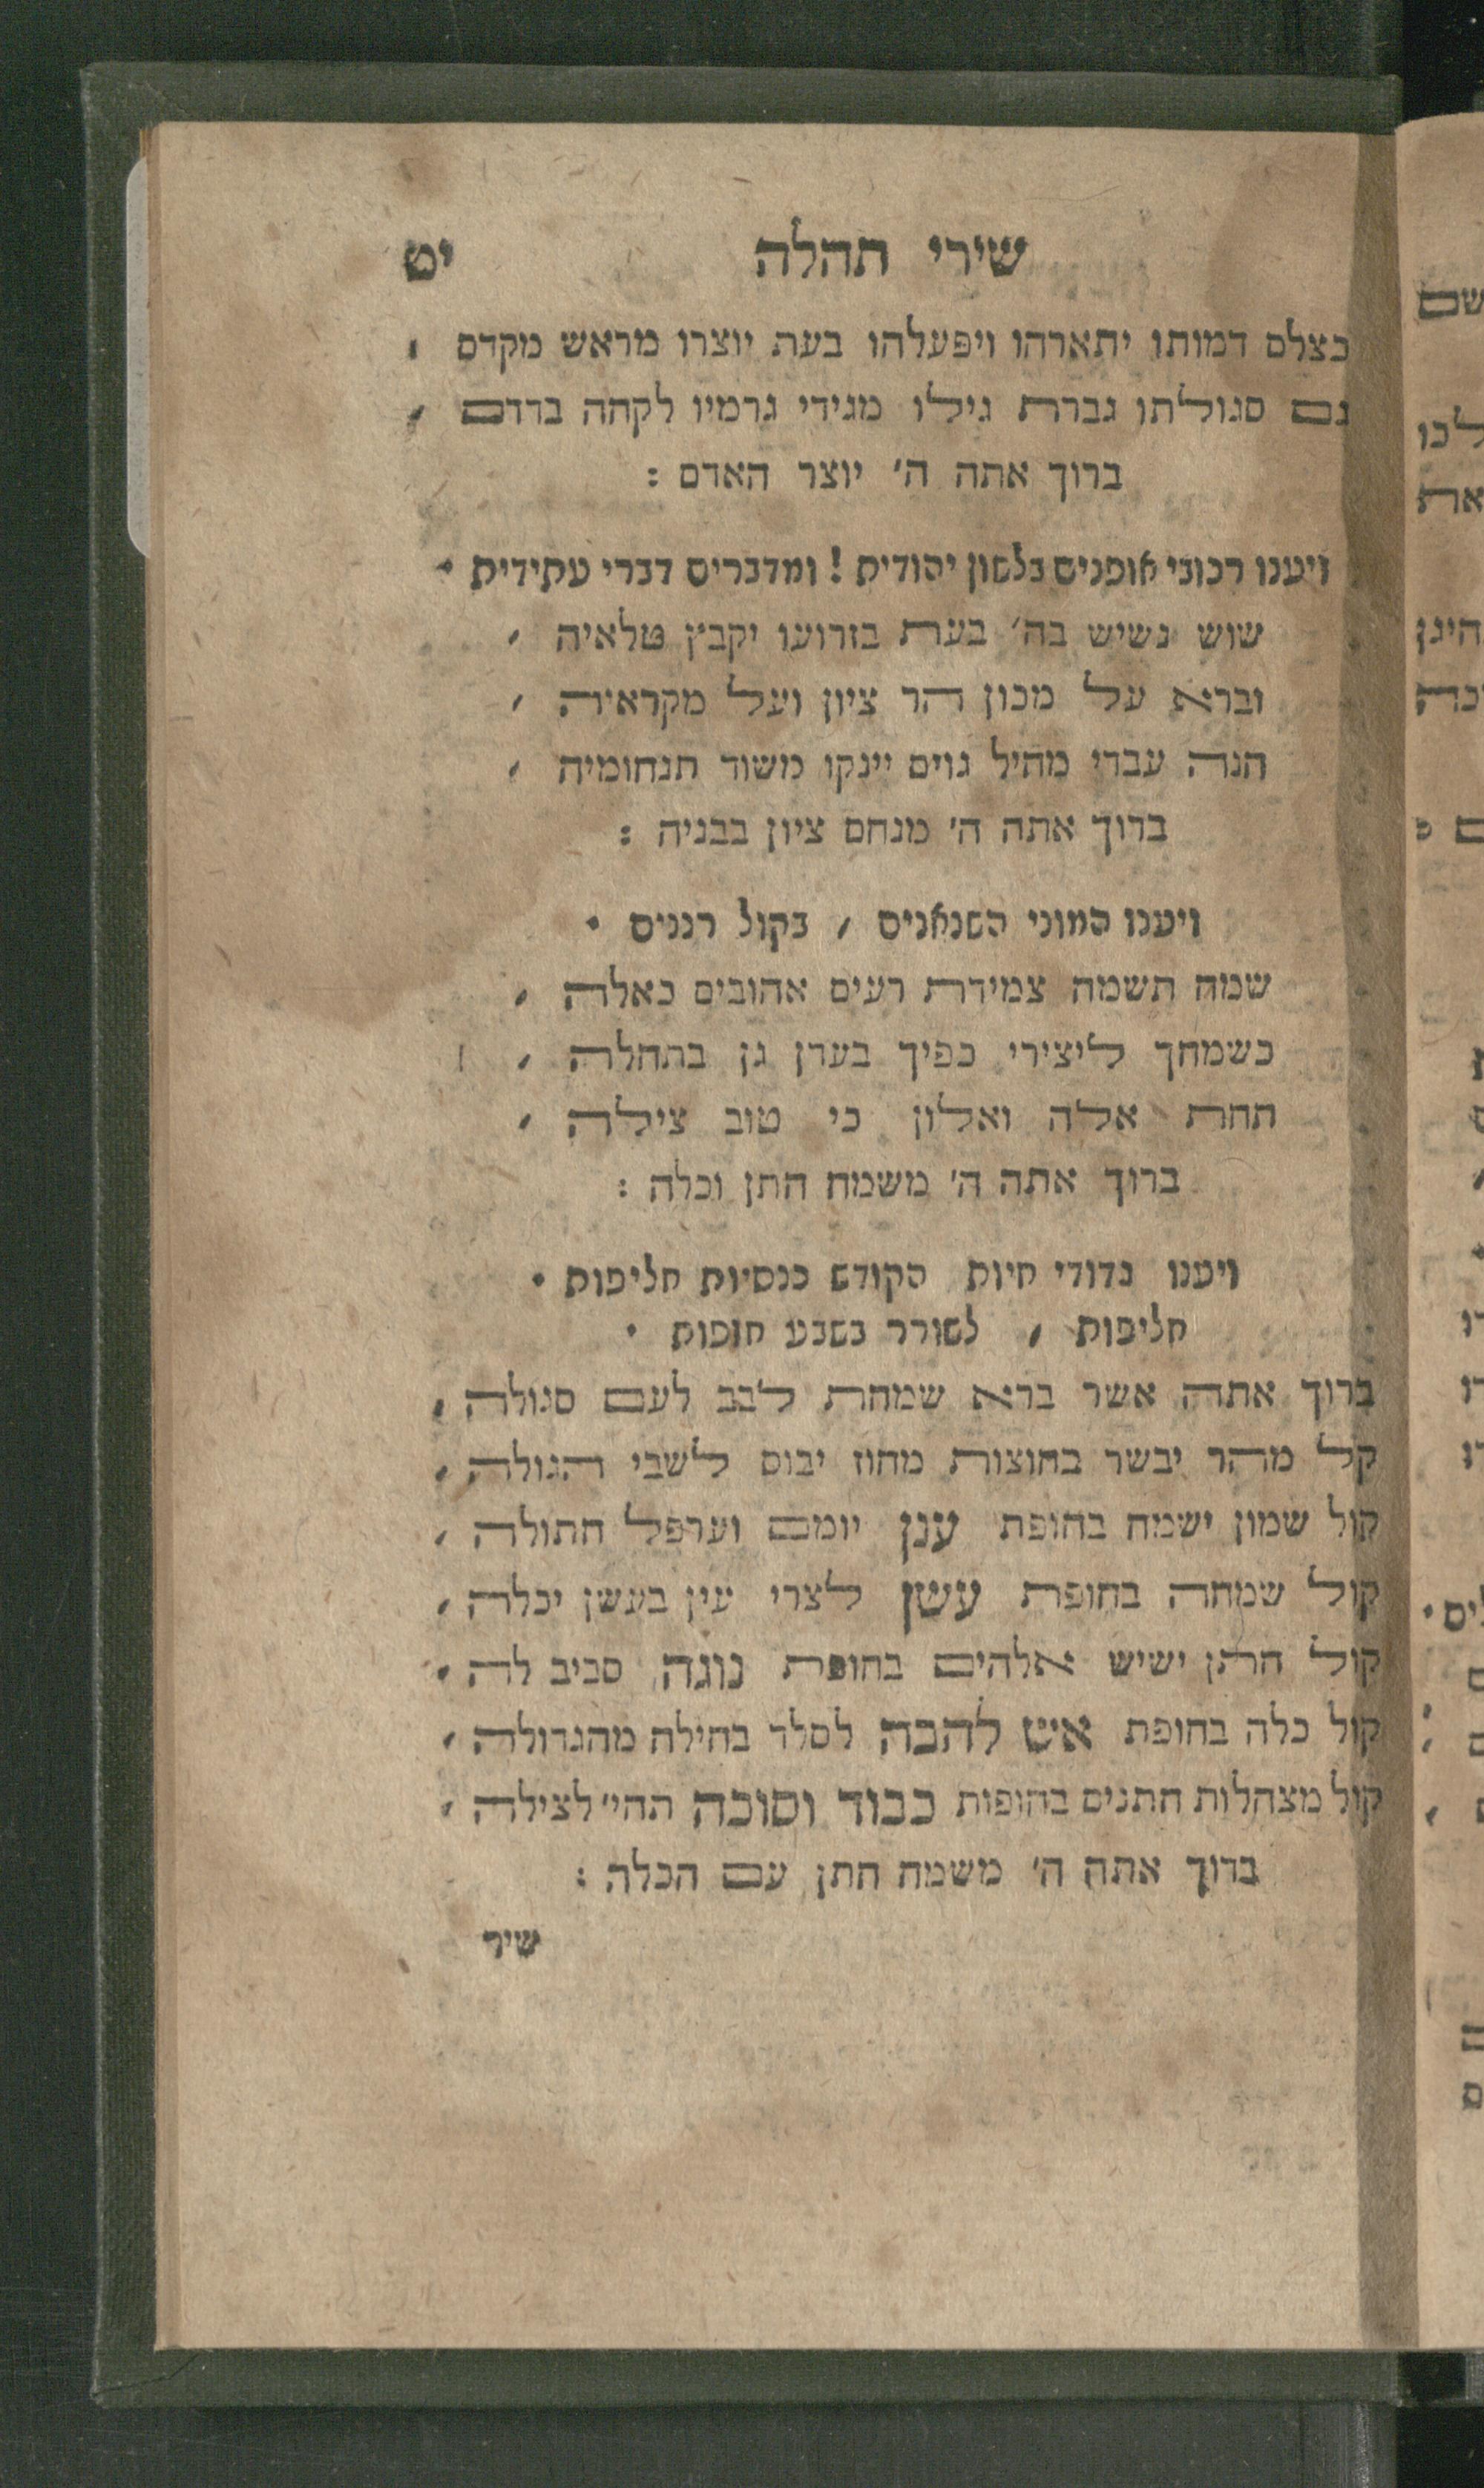 שירי תהלה יט
בצלם דמותו יתארהו ויפעלהו בעת יוצרו מראש מקדם ,
גם סגולתו גברת גילו מגידי גרמיו לקחה ברדם ,
ברוך אתה ה׳ יוצר האדם :
ויענו רכובי אופנים בלשון יהודית ! ומדברים דברי עתידית •
שוש נשיש בה׳ בעת בזרועו יקבץ טלאיה ,
וברא על מכון הר ציון ועל מקראיה ,
הנה עברי מחיל גוים יינקו משוד תנחומיה ,
ברוך אתה ה׳ מנחם ציון בבניה :
ויענו המוני השנאנים , בקול רננים •
שמח תשמח צמידת רעים אהובים כאלה ,
כשמחך ליצירי כפיך בעדן גן בתחלה ,
תחת אלה ואלון כי טוב צילה ,
ברוך אתה ה׳ משמח חתן וכלה :
ויענו גדודי חיות הקודש כנסיות חליפות •
חליפות , לשורר בשבע חופות •
ברוך אתה אשר ברא שמחת לבב לעם סגולה ,
קל מהר יבשר בחוצות מחוז יבוס לשבי הגולה ,
קול שמון ישמח בחופת ענן יומם וערפל חתולה ,
קול שמחה בחופת עשן לצרי עין בעשן יכלה ,
קול חתן ישיש אלהים בחופת נוגה סביב לה •
קול כלה בחופת אש להבה לסלד בחילה מהגדולה ,
קול מצהלות חתנים בחופות כבוד וסוכה תהי׳ לצילה ,
ברוך אתה ה׳ משמח חתן עם הכלה :
שיר